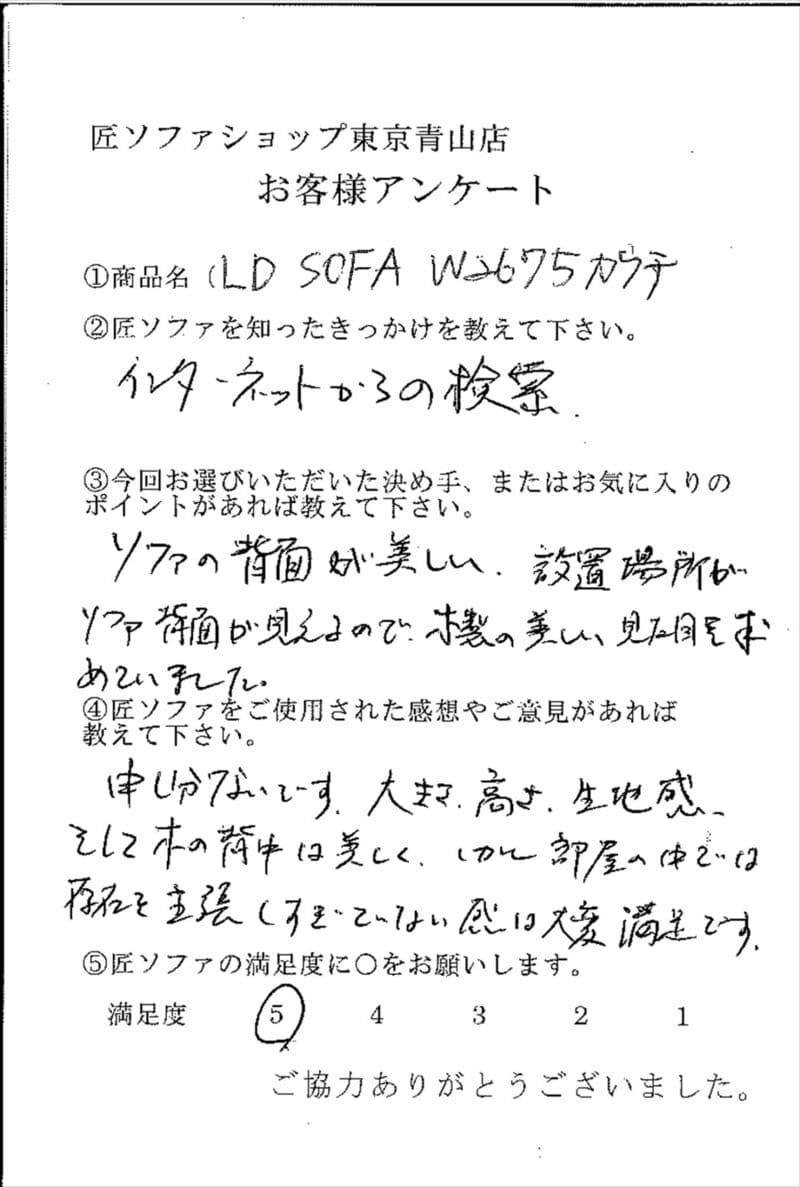 匠ソファショップ東京青山店
お客様アンケート
①商品名（LD SOFA W2675カウチ
②匠ソファを知ったきっかけを教えて下さい。
インターネットからの検索.
③今回お選びいただいた決め手、またはお気に入りの
ポイントがあれば教えて下さい。
ソファの背面が美しい、設置場所が
ソファ背面が見えるので、木製の美しい見た目を求
めていました。
④匠ソファをご使用された感想やご意見があれば
教えて下さい。
申し分ないです、大きさ、高さ、生地感、
そして木の背中は美しく、しかし部屋の中では
存在を主張しすぎていない感は大変満足です。
⑤匠ソファの満足度に〇をお願いします。
満足度 5 4 3 2 1
ご協力ありがとうございました。